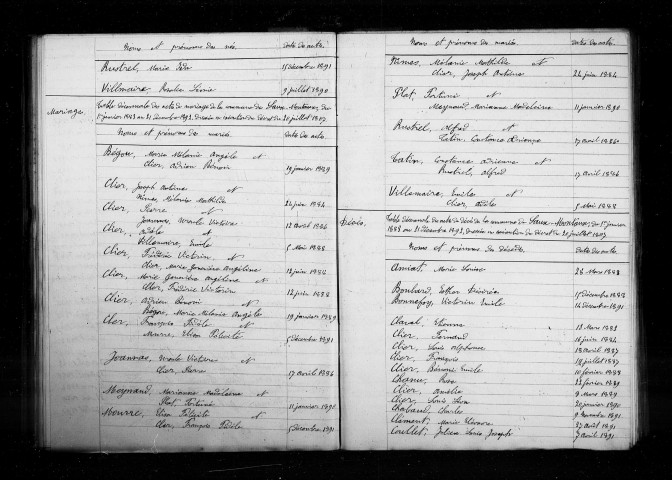 Noms et prénoms des nés. Date des actes.
Rustrel, Marie 15 décembre 1891
Villmaire, Rosalie 9 juillet 1890
Mariage.
Table décennale des actes de mariage de la commune de du
1er janvier 1883 au 31 décembre 1892, dressée en exécution du décret du 20 juillet 1807
Noms et prénoms des mariés. Date des actes.
Bégou, Marie Mélanie Angèle et
Clier, Adrien Bénoni 19 janvier 1889
Clier, Joseph Antoine et
Nîmes, Mélanie Mathilde 24 juin 1884
Clier, Pierre et
Joannas, Victoire 12 avril 1886
Clier, Adèle et
Villemaire, Emile 5 Mai 1888
Clier, Frédéric Victorin et
Clier, Marie Geneviève Angéline 12 juin 1888
Clier, Marie Geneviève Angéline et
Clier, Frédéric Victorin 12 juin 1888
Clier, Adrien Bénoni et
Bégou, Marie Mélanie Angèle 19 janvier 1889
Clier, François Fidèle et
Meurre, Elisa Félicité 5 décembre 1891
Joannas, Victoire et
Clier, Pierre 17 avril 1886
Meynaud, Marianne Madeleine et
Plat, Fortuné 11 janvier 1890
Meurre, Elisa Félicité et
Clier, François Fidèle 5 décembre 1891
Noms et prénoms des mariés. Date des actes.
Nîmes, Mélanie Mathilde et
Clier, Joseph Antoine 24 juin 1884
Plat, Fortuné et
Meynaud, Marianne Madeleine 11 janvier 1890
Rustrel, Alfred et
Tatin, Constance Adrienne 17 avril 1886
Tatin, Constance Adrienne et
Rustrel, Alfred 17 avril 1886
Villemaire, Emile et
Clier, Adèle 5 Mai 1888
Décès.
Table décennale des actes de décès de la commune de du 1er janvier
1883 au 31 décembre 1892, dressée en exécution du décret du 20 juillet 1807
Noms et prénoms des décédés. Date des actes.
Amiat, Marie Louise 28 Mars 1888
Boulard, Esther 15 décembre
Bonnefoy, Victorin Emile 14 décembre 1891
Claval, Etienne 18 Mars 1883
Clier, Fernand 16 juin 1884
Clier, Louis Alphonse 18 avril 1887
Clier, François 19 juillet 1887
Clier, Bénoni Emile 10 février 1888
Rose 12 février 1889
Clier, Amélie 9 Mars 1889
Clier, Louis Léon 20 janvier 1890
Chabaud, Charles 9 1891
Clément, Marie Eléonore 27 août 1891
Coullet, Julien Louis Joseph 7 avril 1891